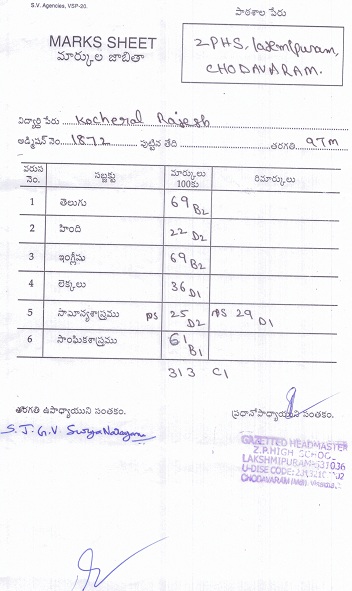 S.V. Agencies, VSP-20.
పాఠశాల పేరు
MARKS SHEET
మార్కుల జాబితా
ZPHS, laxmipuram,
CHODAVARAM.
విద్యార్థి పేరు Kocheral Rajesh
అడ్మిషన్ నెం. 1872 పుట్టిన తేది తరగతి 9TM
వరుస నెం. సబ్జక్టు మార్కులు 100కు రిమార్కులు
1 తెలుగు 69 B2
2 హింది 22 D2
3 ఇంగ్లీషు 69 B2
4 లెక్కలు 36 D1
5 సామాన్యశాస్త్రము PS 25 D2 NS 29 D1
6 సాంఘికశాస్త్రము 61 B1
313 C1
తరగతి ఉపాధ్యాయుని సంతకం.
ప్రధానోపాధ్యాయుని సంతకం.
S.J.G.V Surya Narayana
GAZETTED HEADMASTER
Z.P.HIGH SCHOOL
LAKSHMIPURAM-531036
U-DISE CODE:
CHODAVARAM (MD).